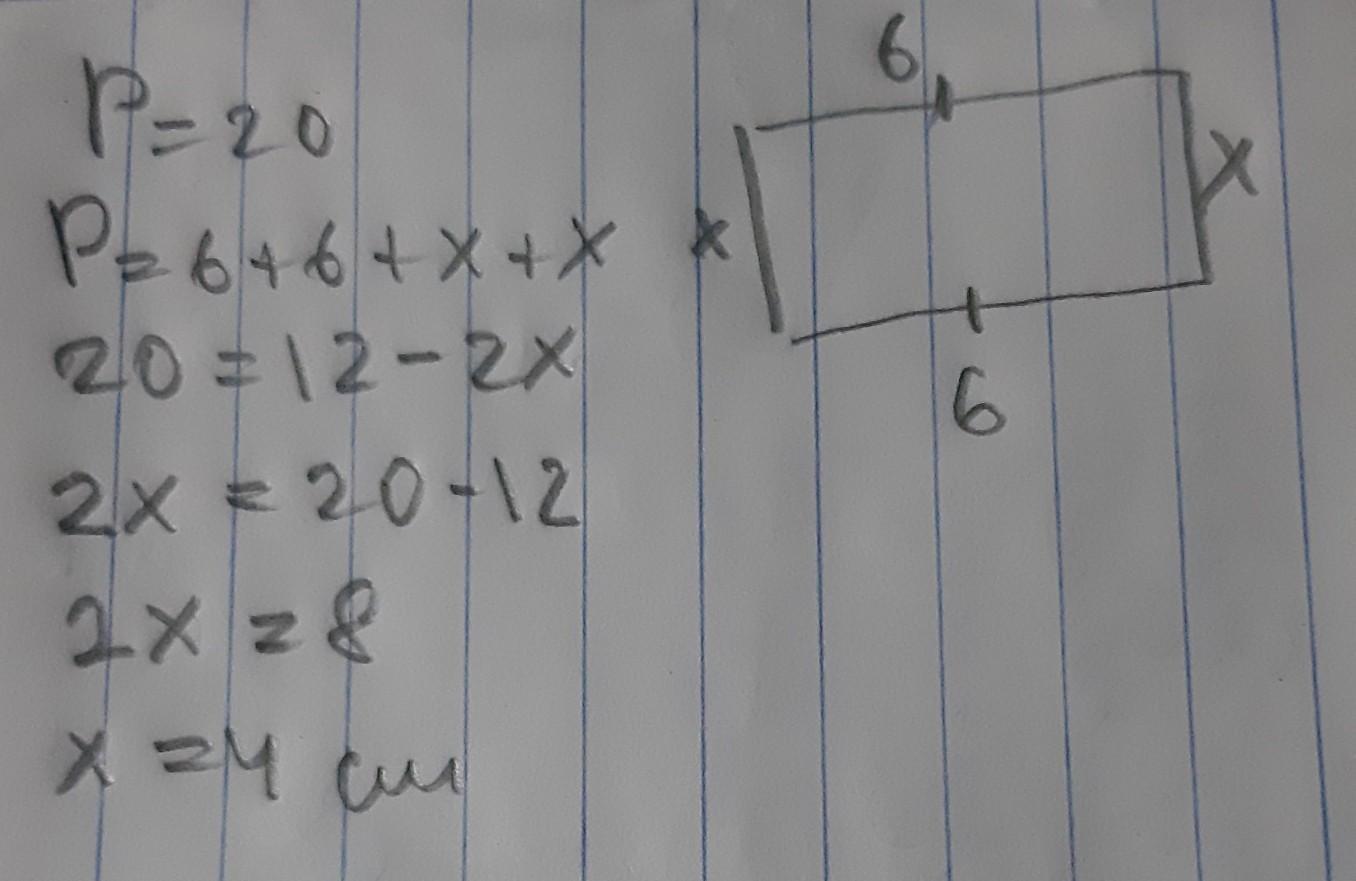 P=20
P=6+6+x+x
20=12-2x
2x=20-12
2x=8
x=4 cm
6
x
x
6